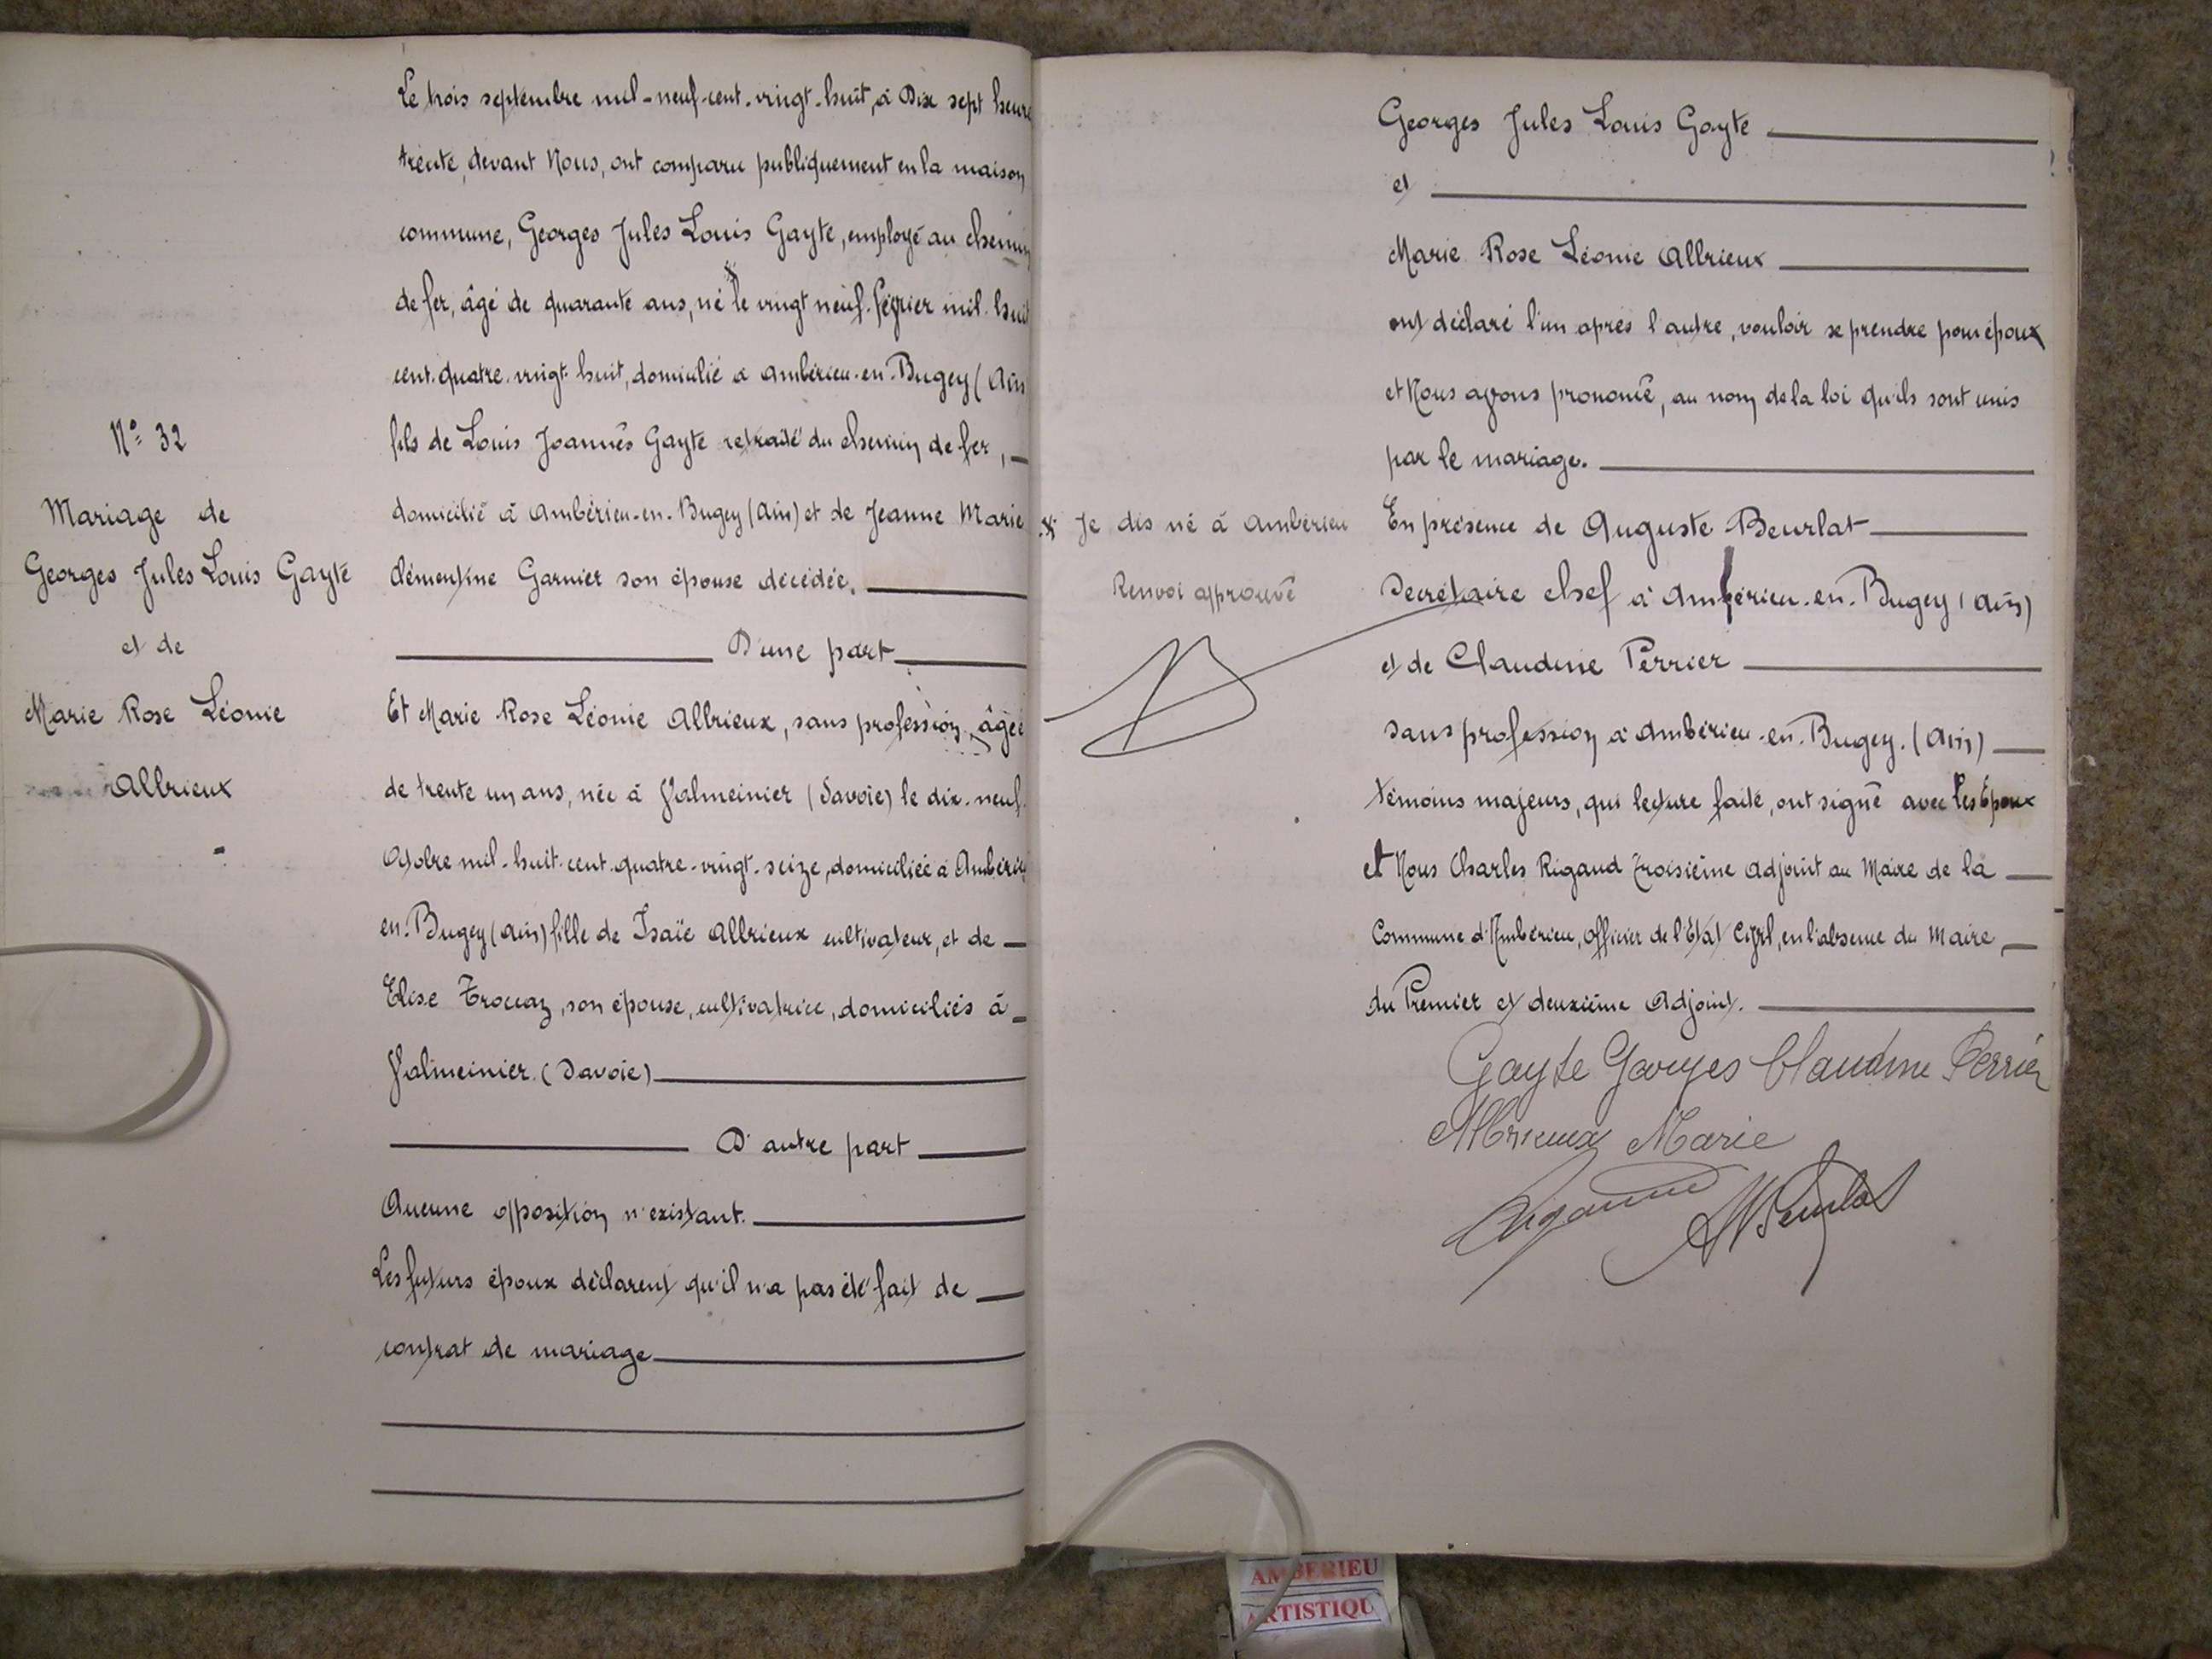 N° 32
Mariage de
Georges Jules Louis Gayte
et de
Marie Rose Léonie
Albrieux
Le trois septembre mil-neuf-cent-vingt-huit, à Dix sept heure
trente, devant Nous, ont comparu publiquement en la maison
commune, Georges Jules Louis Gayte, employé au chemin
de fer, âgé de quarante ans, né le vingt neuf. Février mil. huit
cent. quatre. vingt. huit, domicilié à Ambérieu-en-Bugey (Ain
fils de Louis Joannès Gayte retraité du chemin de fer, —
domicilié à Ambérieu-en-Bugey (Ain) et de Jeanne Marie
Clémentine Garnier son épouse décédée.
D'une part
Et Marie Rose Léonie Albrieux, sans profession, âgée
de trente un ans, née à Valmeinier (Savoie) le dix-neuf
Octobre mil-huit-cent-quatre-vingt-seize, domiciliée à Ambérieu
en-Bugey (Ain) fille de Isaïe Albrieux cultivateur, et de —
Elise Trouaz, son épouse, cultivatrice, domiciliés à —
Valmeinier. (Savoie)
D'autre part
Aucune opposition n'existant.
Les futurs époux déclarent qu'il n'a pas été fait de —
contrat de mariage
x Je dis né à Ambérieu
Renvoi approuvé
Georges Jules Louis Gayte
et
Marie Rose Léonie Albrieux
ont déclaré l'un après l'autre, vouloir se prendre pour époux
et Nous avons prononcé, au nom de la loi qu'ils sont unis
par le mariage.
En présence de Auguste Beurlat
Secrétaire chef à Ambérieu-en-Bugey (Ain)
et de Claudine Perrier
sans profession à Ambérieu-en-Bugey. (Ain) —
témoins majeurs, qui lecture faite, ont signé avec les époux
et Nous Charles Rigaud Troisième Adjoint au Maire de la —
Commune d'Ambérieu, Officier de l'Etat Civil, en l'absence du Maire, —
du Premier et deuxième Adjoint.
Gayte Georges Claudine Perrier
Albrieux Marie
Rigaud ABeurlat
AMBERIEU
ARTISTIQU